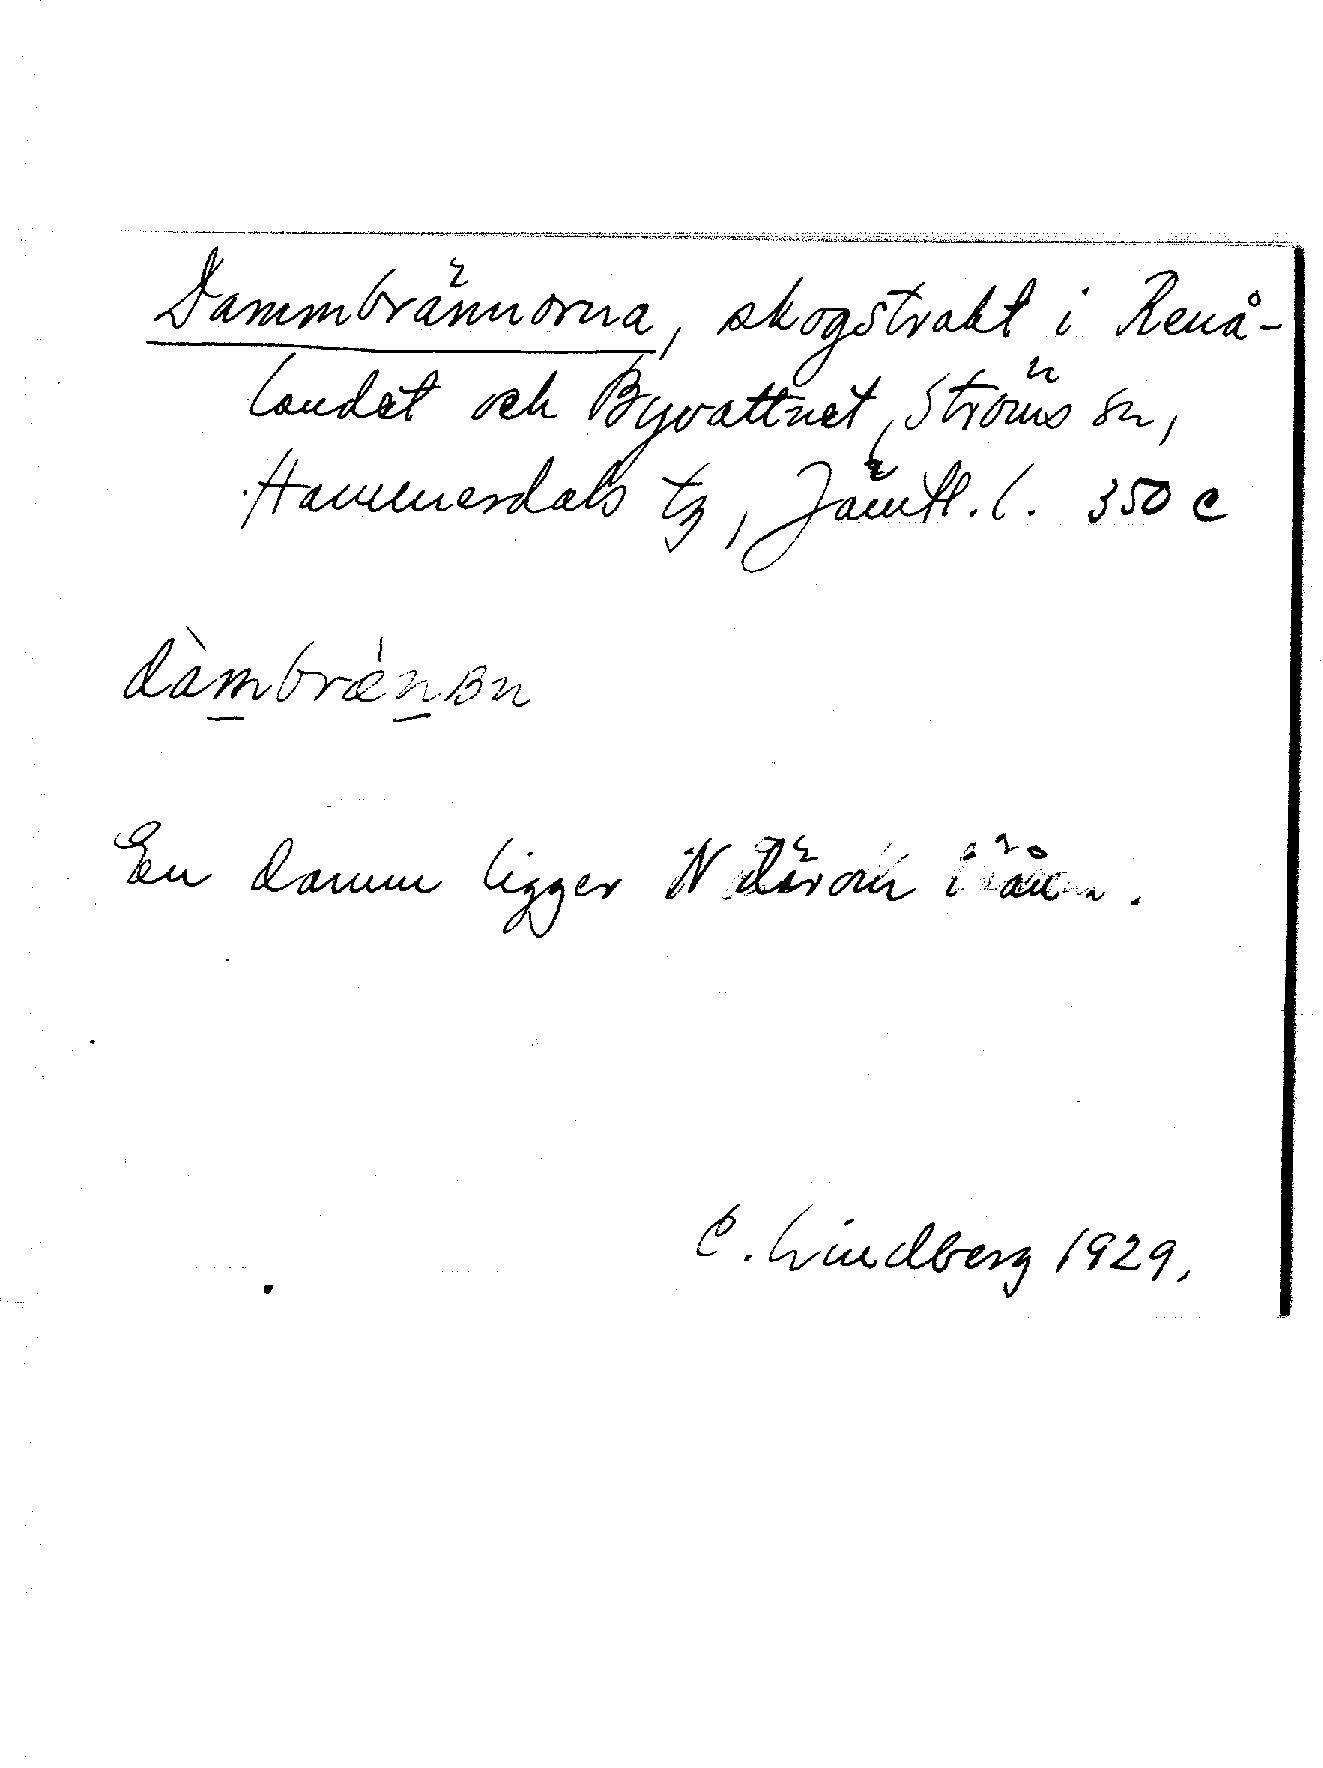 Dammbrännorna, skogstrakt i Renå-
landet och Byvattnet, Ströms sn,
Hammerdals tg, Jämtl. l. 350 c
dàmbræ̀nʙn
En damm ligger N därom i ån.
C. Lindberg 1929.